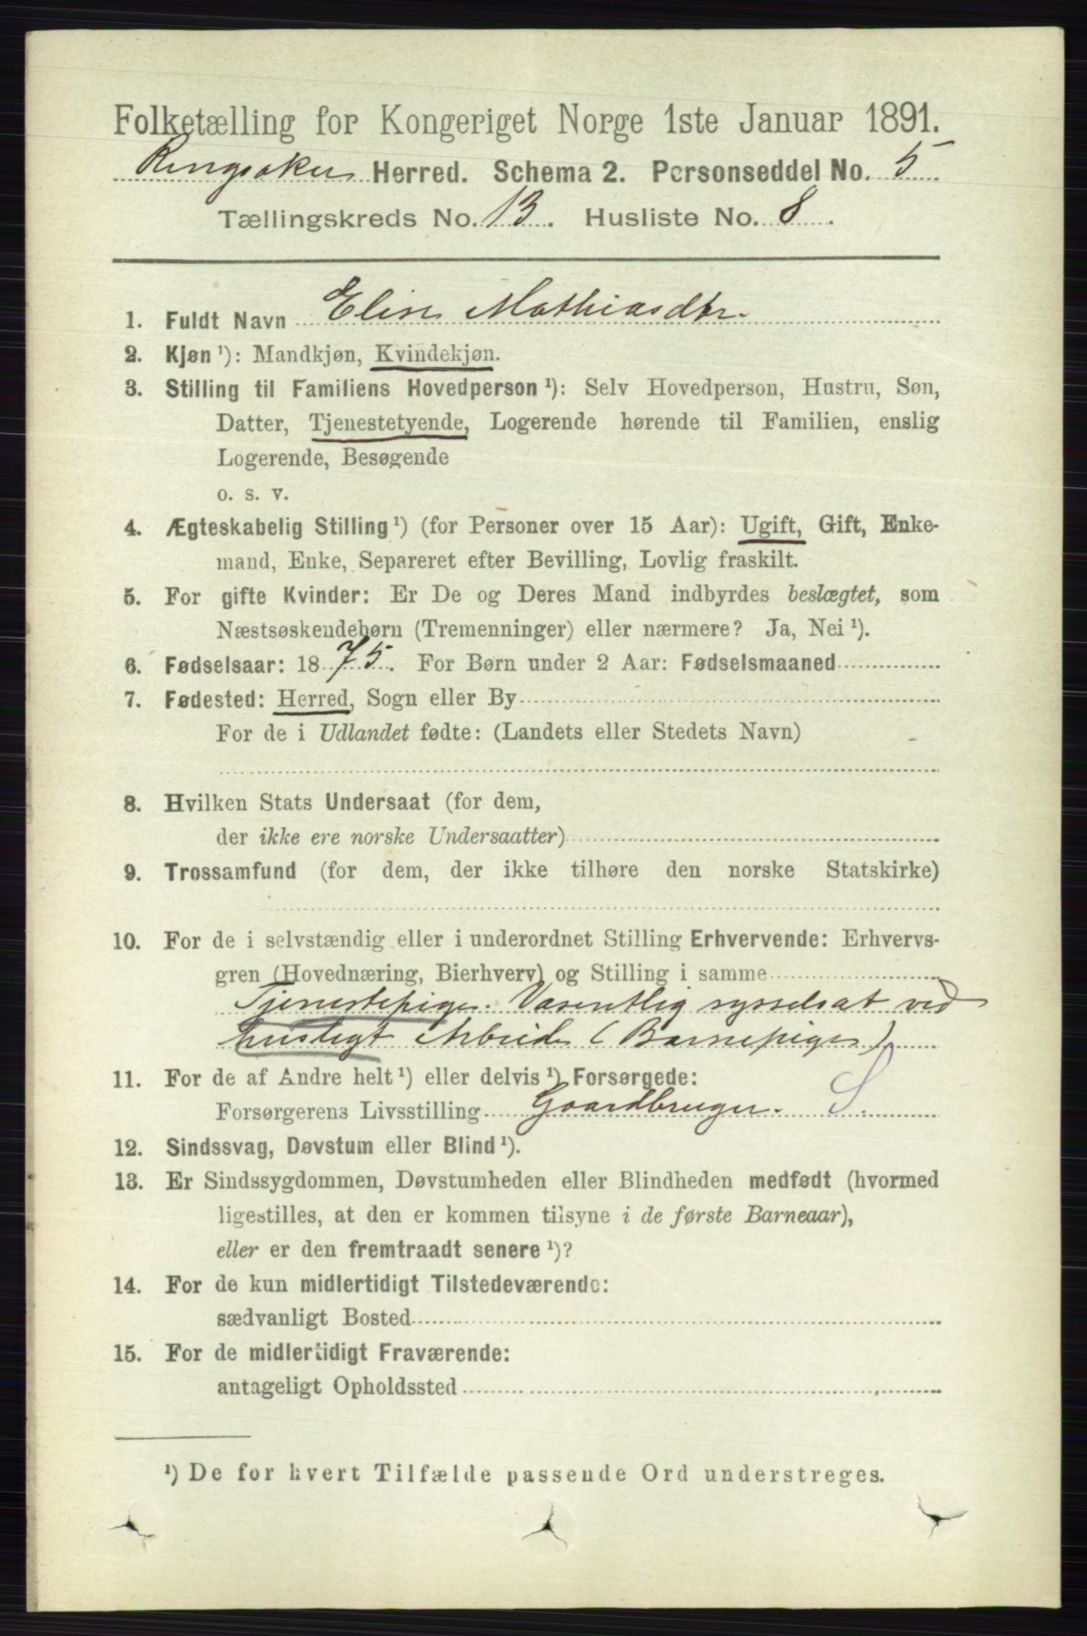 Folketælling for Kongeriget Norge 1ste Januar 1891.
Ringsaker Herred. Schema 2. Personseddel No. 5
Tællingskreds No. 13. Husliste No. 8.
1. Fuldt Navn Elise Mathiasdtr.
2. Kjøn ¹): Mandkjøn, Kvindekjøn.
3. Stilling til Familiens Hovedperson ¹): Selv Hovedperson, Hustru, Søn,
Datter, Tjenestetyende, Logerende hørende til Familien, enslig
Logerende, Besøgende
o. s. v.
4. Ægteskabelig Stilling ¹) (for Personer over 15 Aar): Ugift, Gift, Enke-
mand, Enke, Separeret efter Bevilling, Lovlig fraskilt.
5. For gifte Kvinder: Er De og Deres Mand indbyrdes beslægtet, som
Næstsøskendebørn (Tremenninger) eller nærmere? Ja, Nei ¹).
6. Fødselsaar: 1875. For Børn under 2 Aar: Fødselsmaaned
7. Fødested: Herred, Sogn eller By
For de i Udlandet fødte: (Landets eller Stedets Navn)
8. Hvilken Stats Undersaat (for dem,
der ikke ere norske Undersaatter)
9. Trossamfund (for dem, der ikke tilhøre den norske Statskirke)
10. For de i selvstændig eller i underordnet Stilling Erhvervende: Erhvervs-
gren (Hovednæring, Bierhverv) og Stilling i samme
Tjenestepige. Væsentlig sysselsat ved
husligt Arbeide (Barnepige)
11. For de af Andre helt ¹) eller delvis ¹) Forsørgede:
Forsørgerens Livsstilling Gaardbruger. S.
12. Sindssvag, Døvstum eller Blind ¹).
13. Er Sindssygdommen, Døvstumheden eller Blindheden medfødt (hvormed
ligestilles, at den er kommen tilsyne i de første Barneaar),
eller er den fremtraadt senere ¹)?
14. For de kun midlertidigt Tilstedeværende:
sædvanligt Bosted
15. For de midlertidigt Fraværende:
antageligt Opholdssted
¹) De for hvert Tilfælde passende Ord understreges.